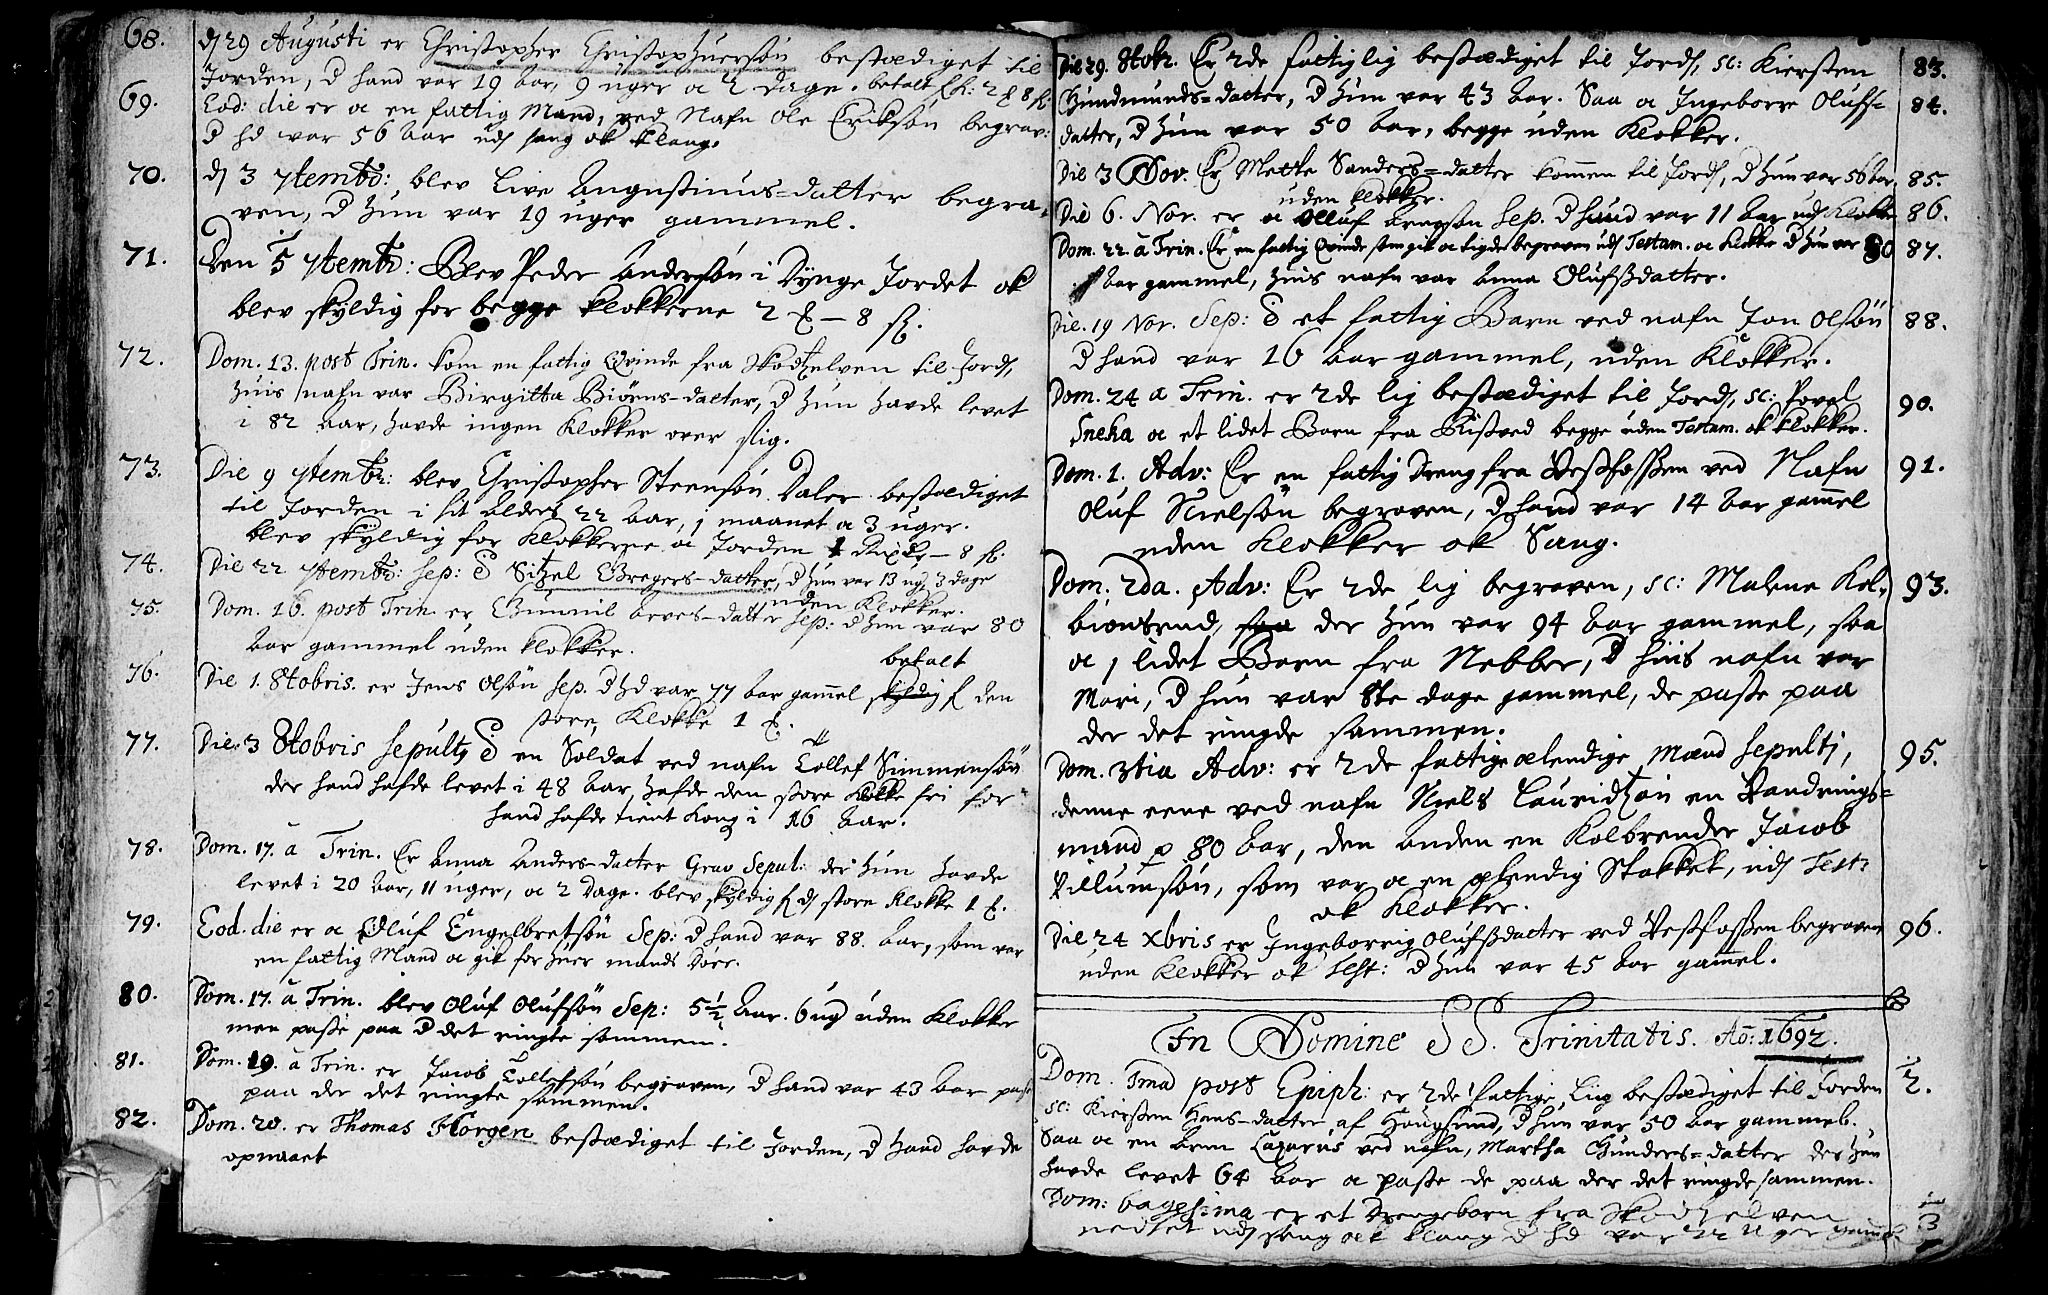 68. dñ 29 Augusti er Christopher Christophuersøn bestædiget til
Jorden, d hand var 19 aar, 9 uger oc 2 dage. betalt
69. Eod: die er oc en fattig Mand, ved Nafn Ole Eriksøn begrav:
d hd var 56 aar uds sang ok klang.
70. dñ 3 7tembr: blev Live Augustinus=datter begra,
ven, d hun var 19 uger gammel.
71. Den 5 7tembr: Blev Peder Andersøn i Dynge Jordet ok
blev skyldig for begge klokkerne 2 – 8 ſ.
72. Dom. 13. post Trin. kom en fattig Qvinde fra Skodzelven til Jords,
huis nafn var Birgitta Biørns-datter, d hun havde levet
i 82 Aar, havde ingen Klokker over slig.
73. Die 9 7tembr: blev Christopher Steensøn Daler bestædiget
til Jorden i sit Alders 22 Aar, 1 maanet oc 3 uger.
blev skyldig for Klokkerne oc Jorden 1 – 8 ſ.
74. Die 22 7tembr: sep: d Sitzel Gregers-datter, d hun var 13 ug 3 dage
uden Klokker.
75. Dom. 16. post Trin. er Gunnil Arves-datter sep: d hun var 80
Aar gammel uden klokker.
76. Die 1. 8tobris. er Jens Olsøn sep. d hd var 77 Aar gamel skyldig betalt f den
store, Klokke 1
77. Die 3 8tobris sepult, d en Soldat ved nafn Tollef Simmensøn
der hand hafde levet i 48 Aar, hafde den store klokke fri for
hand hafde tient kong i 16 Aar.
78. Dom. 17. a Trin. Er Anna Anders-datter Grav Sepul: der hun havde
levet i 20 Aar, 11 uger, oc 2 Dage. blev skyldig f ds store Klokke 1
79. Eod. die er oc Oluf Engelbretsøn Sep: d hand var 88. Aar, som var
en fattig Mand oc gik for huer mands Dør.
80. Dom. 17. a Trin. blev Oluf Olufsøn Sep: 5½ Aar. 6 ug uden Klokker
men passe paa d det ringte sammen.
81. Dom. 19. a Trin. er Jacob Tollefsøn begraven, d hand var 43 Aar passe
paa der det ringte sammen.
82. Dom. 20. er Thomas Horgen bestædiget til Jorden, d hand havde
opnaaet
Die 29. 8tobr. Er 2de fattig lig bestædiget til Jords, sc: Kiersten 83.
Gundmunds=datter, d hun var 43 Aar. Saa oc Ingeborre Olufs= 84.
datter, d hun var 50 Aar, begge uden Klokker.
Die 3 Nov. Er Mette Sanders=datter kommen til Jords, d hun var 56 Aar, 85.
uden klokker.
Die 6. Nov. er oc Olluf sep. d hand var 11 Aar uds Klokke 86.
Dom. 22. a Trin. Er en fattig Qvinde som gik oc tigde begraven uds Testam. oc Klokke d hun var 80 87.
Aar gammel, huis nafn var Anna Olufsdatter.
Die. 19 Nov. Sep: d et fattig Barn ved nafn Jon Olsøn 88.
d hand var 16 Aar gammel, uden Klokker.
Dom. 24 a Trin. er 2de lig bestædiget til Jords, sc: Povel 90.
Sneka oc et lidet Barn fra begge uden Testam. ok klokker.
Dom. 1. Adv: Er en fattig Dreng fra Vestfossen ved Nafn 91.
Oluf Nielsøn begraven, d hand var 14 Aar gamel
uden Klokker ok Sang.
Dom. 2da. Adv: Er 2de lig begraven, sc: Malene Kol- 93.
biønsrud, saa der hun var 94 Aar gammel, saa
oc 1 lidet Barn fra Nebber, d huis nafn var
Mari, d hun var 8te dage gammel, de passe paa
der det ringde sammen.
Dom. 3tia Adv: er 2de fattige ælendige Mænd sepulti, 95.
denne eene ved nafn Niels Lauridzøn en Vandrings=
mand p 80 Aar, den anden en Kolbrender Jacob
Villumsøn, som var oc en ælendig Stakket, uds Test:
ok Klokker.
Die 24 Xbris er Ingeborrig Olufsdatter ved Vestfossen begraven 96.
uden Klokker ok Test: d hun var 45 Aar gamel.
In Nomine SS. Trinitatis. Ao: 1692.
Dom. 1ma post Epiph: er 2de fattige Lig bestædiget til Jorden 2.
sc: Kiersten Hans-datter af Hougsund, d hun var 50 Aar gammel.
Saa oc en Arm Lazarus ved nafn, Martha Gunders=datter der hun
havde levet 64 Aar oc passe de paa der det ringde sammen.
Dom: 6agesima er et Drengebarn fra Skodzelven 3
nedset uds sang ock klang d hd var 22 Uger gammel